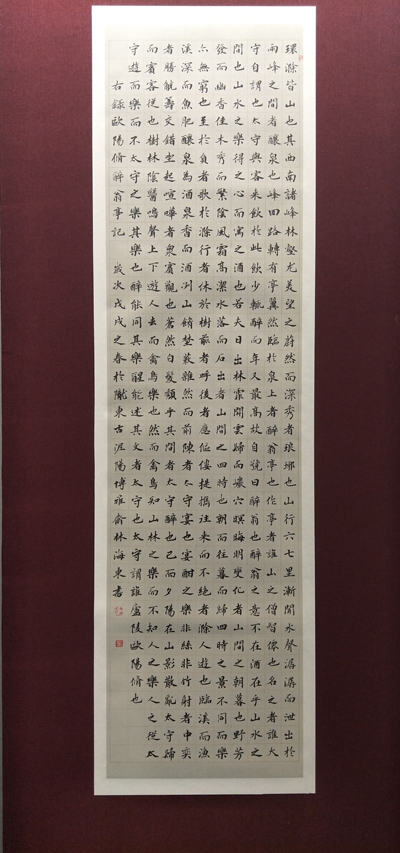 環滁皆山也其西南諸峰林壑尤美望之蔚然而深秀者琅琊也山行六七里漸聞水聲潺潺而泄出於
兩峰之間者釀泉也峰回路轉有亭翼然臨於泉上者醉翁亭也作亭者誰山之僧智僊也名之者誰太
守自謂也太守與客來飲於此飲少輒醉而年又最高故自號曰醉翁也醉翁之意不在酒在乎山水之
間也山水之樂得之心而寓之酒也若夫日出林霏開雲歸而巖穴暝晦明變化者山間之朝暮也野芳
發而幽香佳木秀而繁陰風霜高潔水落而石出者山間之四時也朝而往暮而歸四時之景不同而樂
亦無窮也至於負者歌於滁行者休於樹前者呼後者應傴僂提攜往來而不絕者滁人遊也臨溪而漁
溪深而魚肥釀泉為酒泉香而酒洌山餚埜蔌雜然而前陳者太守宴也宴酣之樂非絲非竹射者中奕
者勝觥籌交錯坐起喧嘩者眾賓觀也蒼然白髮頹乎其間者太守醉也已而夕陽在山影散亂太守歸
而賓客從也樹林陰翳鳴聲上下遊人去而禽鳥樂也然而禽鳥知山林之樂而不知人之樂人之從太
守遊而樂而不太守之樂其樂也醉能同其樂醒能述其文者太守也太守謂誰廬陵歐陽脩也
右錄歐陽脩醉翁亭記 歲次戊戌之春於隴東古涇陽博雅齋林海東書